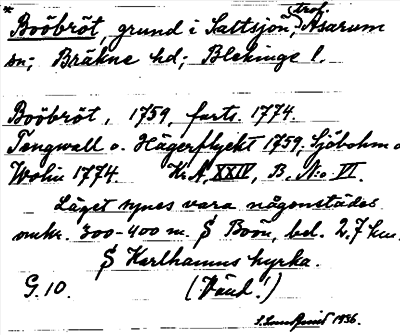 * Boobröt, grund i Saltsjön, trol. Asarum
sn; Bräkne hd; Blekinge l.
Boobröt, 1759, forts. 1774.
Tengwall o. Hägerflycht 1759. Sjöbohm o
Wohn 1774. Kr.A, XXIV, B. N:o VI.
Läget synes vara någonstädes
omkr. 300-400 m. S Boön, bel. 2.7 km.
S Karlhamns kyrka.
G. 10. (Vänd!)
1936.